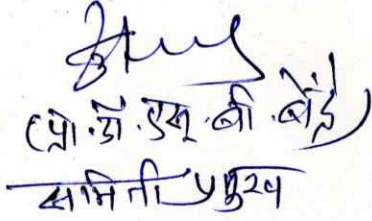 (प्रो.डॉ.एस.बी.बोंद्रे)
समिती प्रमुख